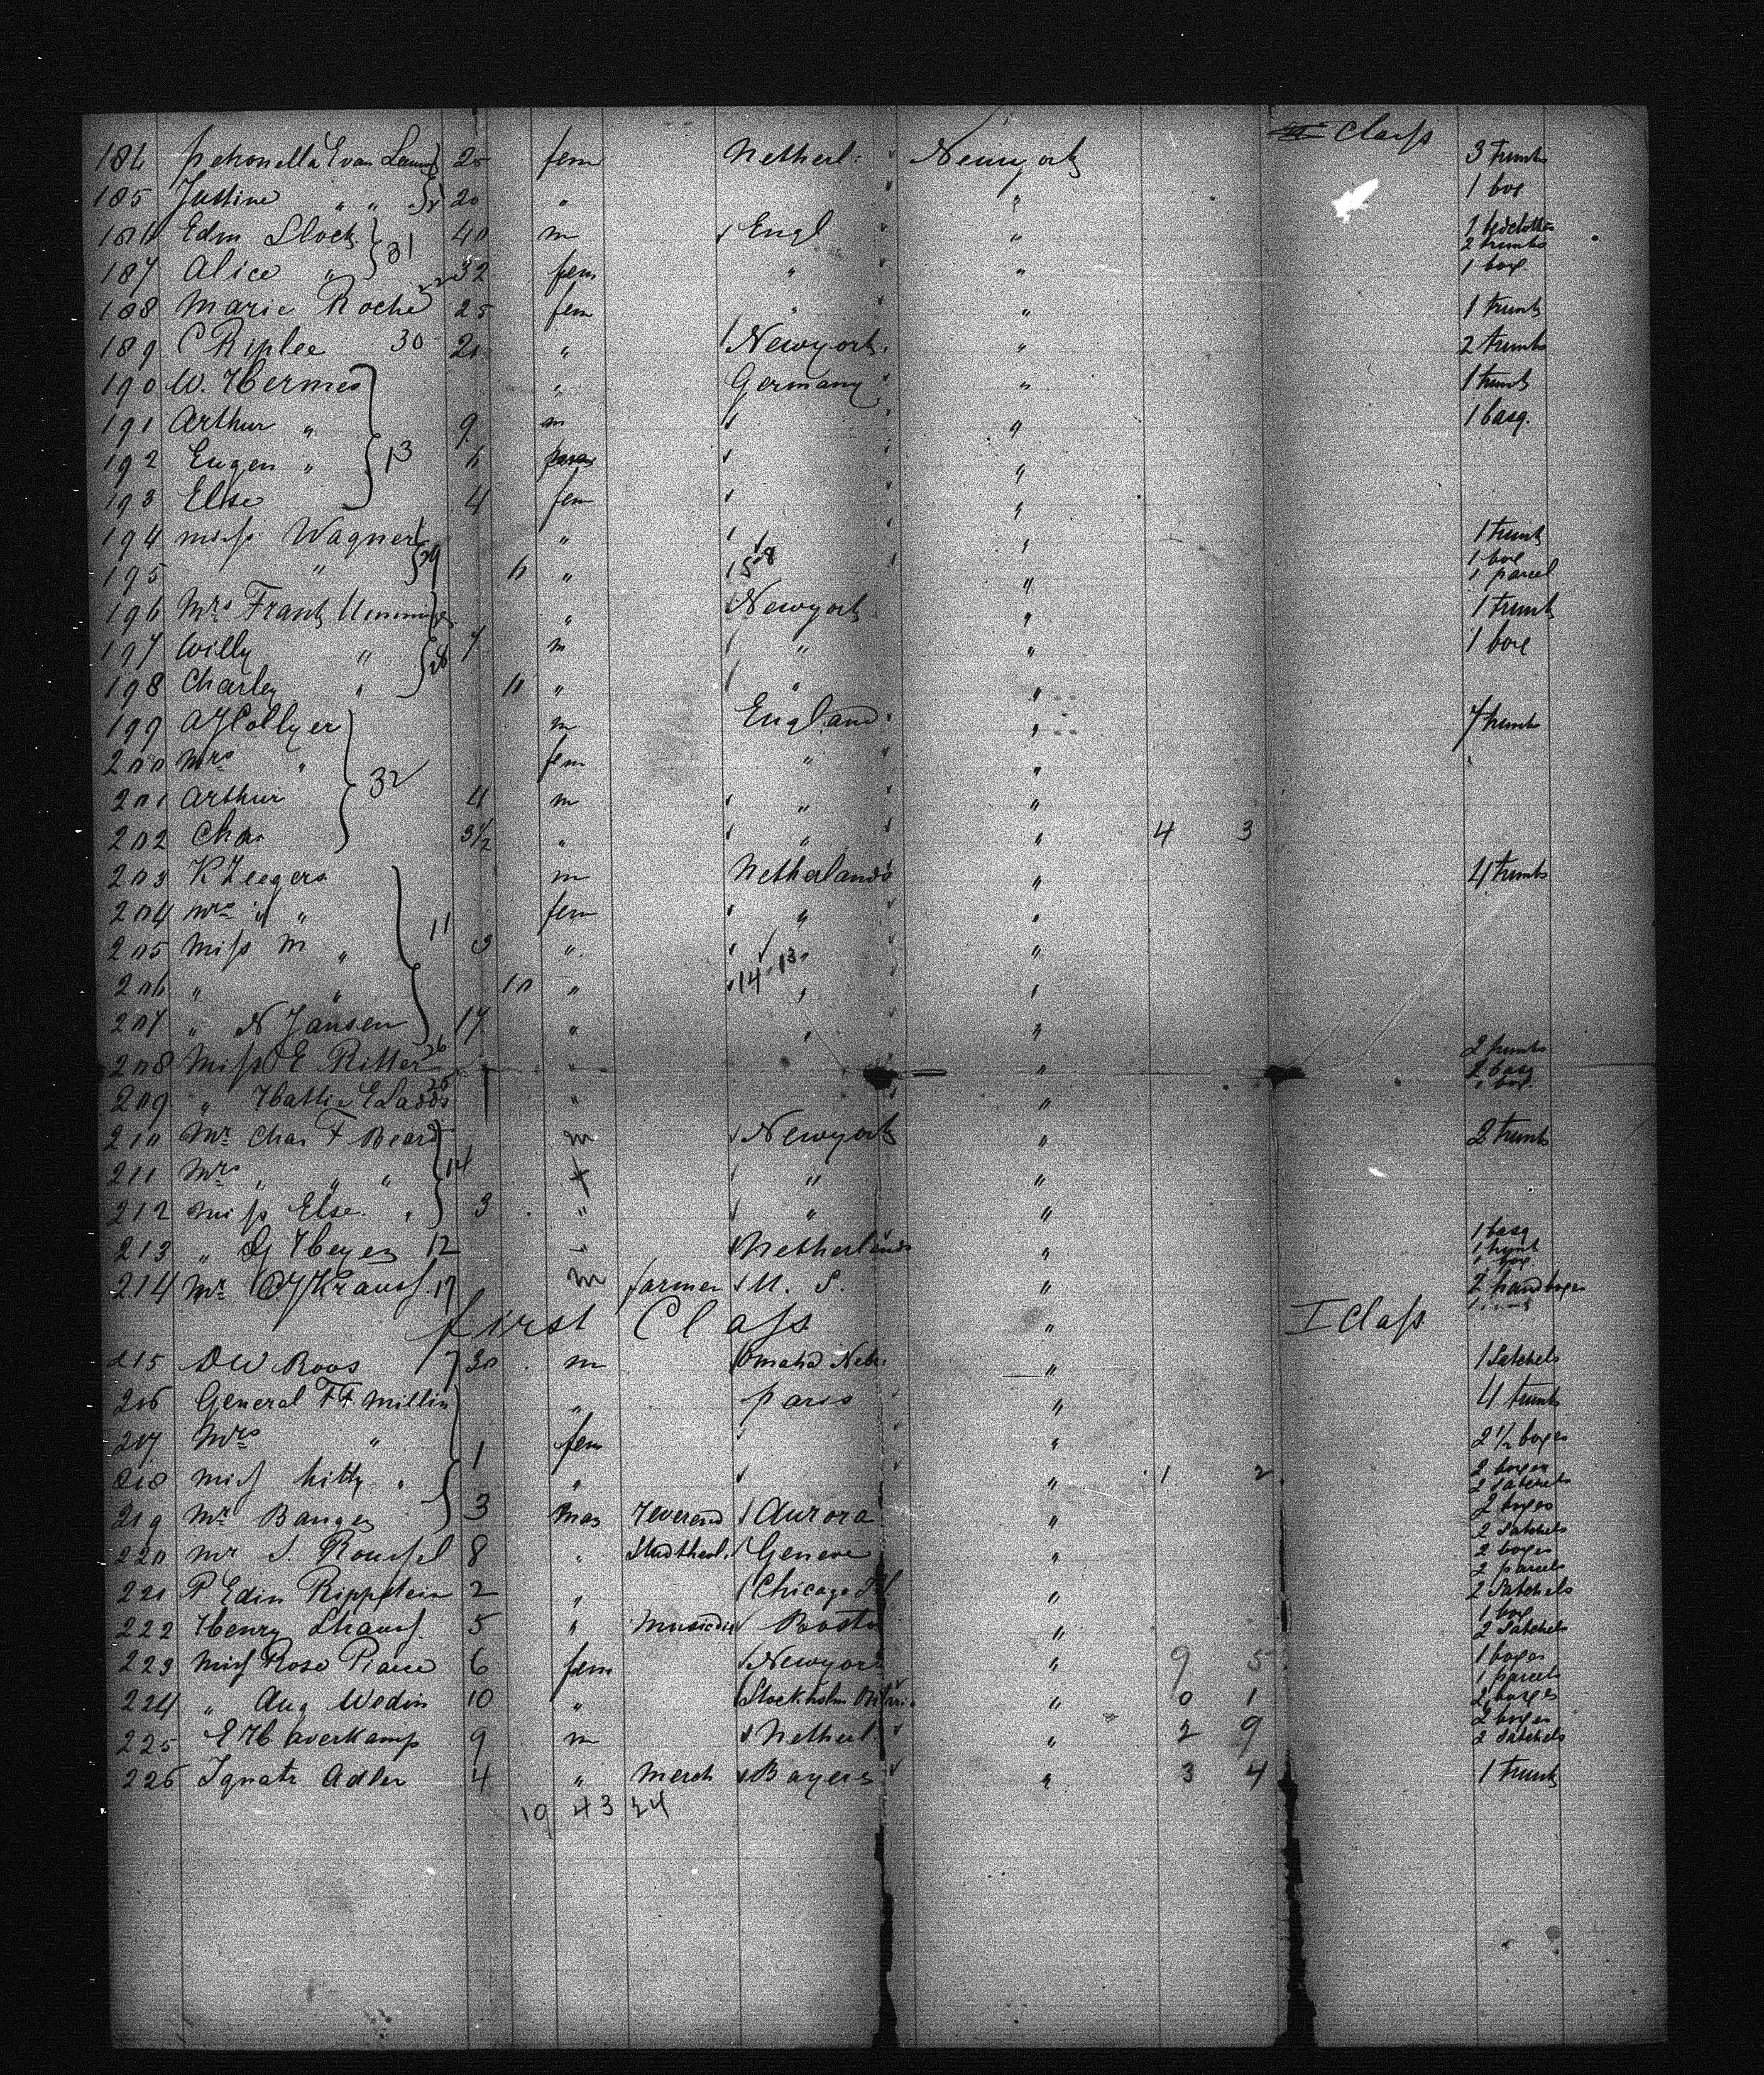 II Class
184 Petronella E van 25 fem Netherl: New york 3 trunks
185 Justine " " 20 " " 1 box
186 Edm Block 40 m Engl " 1 bedclothes 2 trunks
187 Alice " 31 32 fem " " 1 box
188 Marie Roche 25 fem " " 1 trunk
189 C Riplee 30 " Newyork " 2 trunks
190 W. Hermes " Germany " 1 trunk
191 Arthur " 9 m " 1 basq.
192 Eugen " 13 6 "
193 Else 4 fem "
194 Miss Wagner " " 1 trunk
195 " " " 1 box 1 parcel
196 Mrs Frank " Newyork " 1 trunk
197 Willy " 7 m " " 1 box
198 Charley " " " "
199 A J Collyer m England " 7 trunks
200 Mrs " fem " "
201 Arthur 32 4 m " "
202 Chas 3 1/2 " " " 4 3
203 K Zeegers m Netherlands " 4 trunks
204 Mrs " " fem " "
205 Miss M " 11 3 " "
206 " " 10 " 14 13 " "
207 " N Jansen 17 " " "
208 Miss E Ritter 26 " " 2 trunks
209 " Hattie E Ladds " " 2 basq 1 box
210 Mr Chas F Beard m Newyork " 2 trunks
211 Mrs " " " 14 " "
212 Miss Else " 3 " " "
213 " G Heyen 12 Netherlands " 1 basq 1 trunk 1 box
214 Mr C J Krauss 17 m farmer U. S. " 2 handboxes
first Class " I Class
215 D W Roos 7 30 m Omaha Nebr. " 1 Satchels
216 General F F Millin " Paris " 4 trunks
217 Mrs " 1 fem " 2 1/2 boxes
218 Miss Kitty " " " 1 2 2 boxes 2 Satchels
219 Mr Banger 3 mas Reverend Aurora " 2 boxes 2 Satchels
220 Mr S. Roussel 8 " Studtheol. Geneve " 2 boxes 2 parcels
221 P Edin Rippstein 2 " Chicago Ill " 2 Satchels
222 Henry Strauss 5 " Boston " 1 box 2 Satchels
223 Miss Rose Pierce 6 fem Newyork " 9 5 1 boxes 1 parcels
224 " Aug Wedin 10 " Stockholm " 0 1 2 boxes
225 E Haverkamp 9 m Netherl. " 2 9 2 boxes 2 Satchels
226 Ignatz Adler 4 " Merch Bayers " 3 4 1 trunk
19 43 24